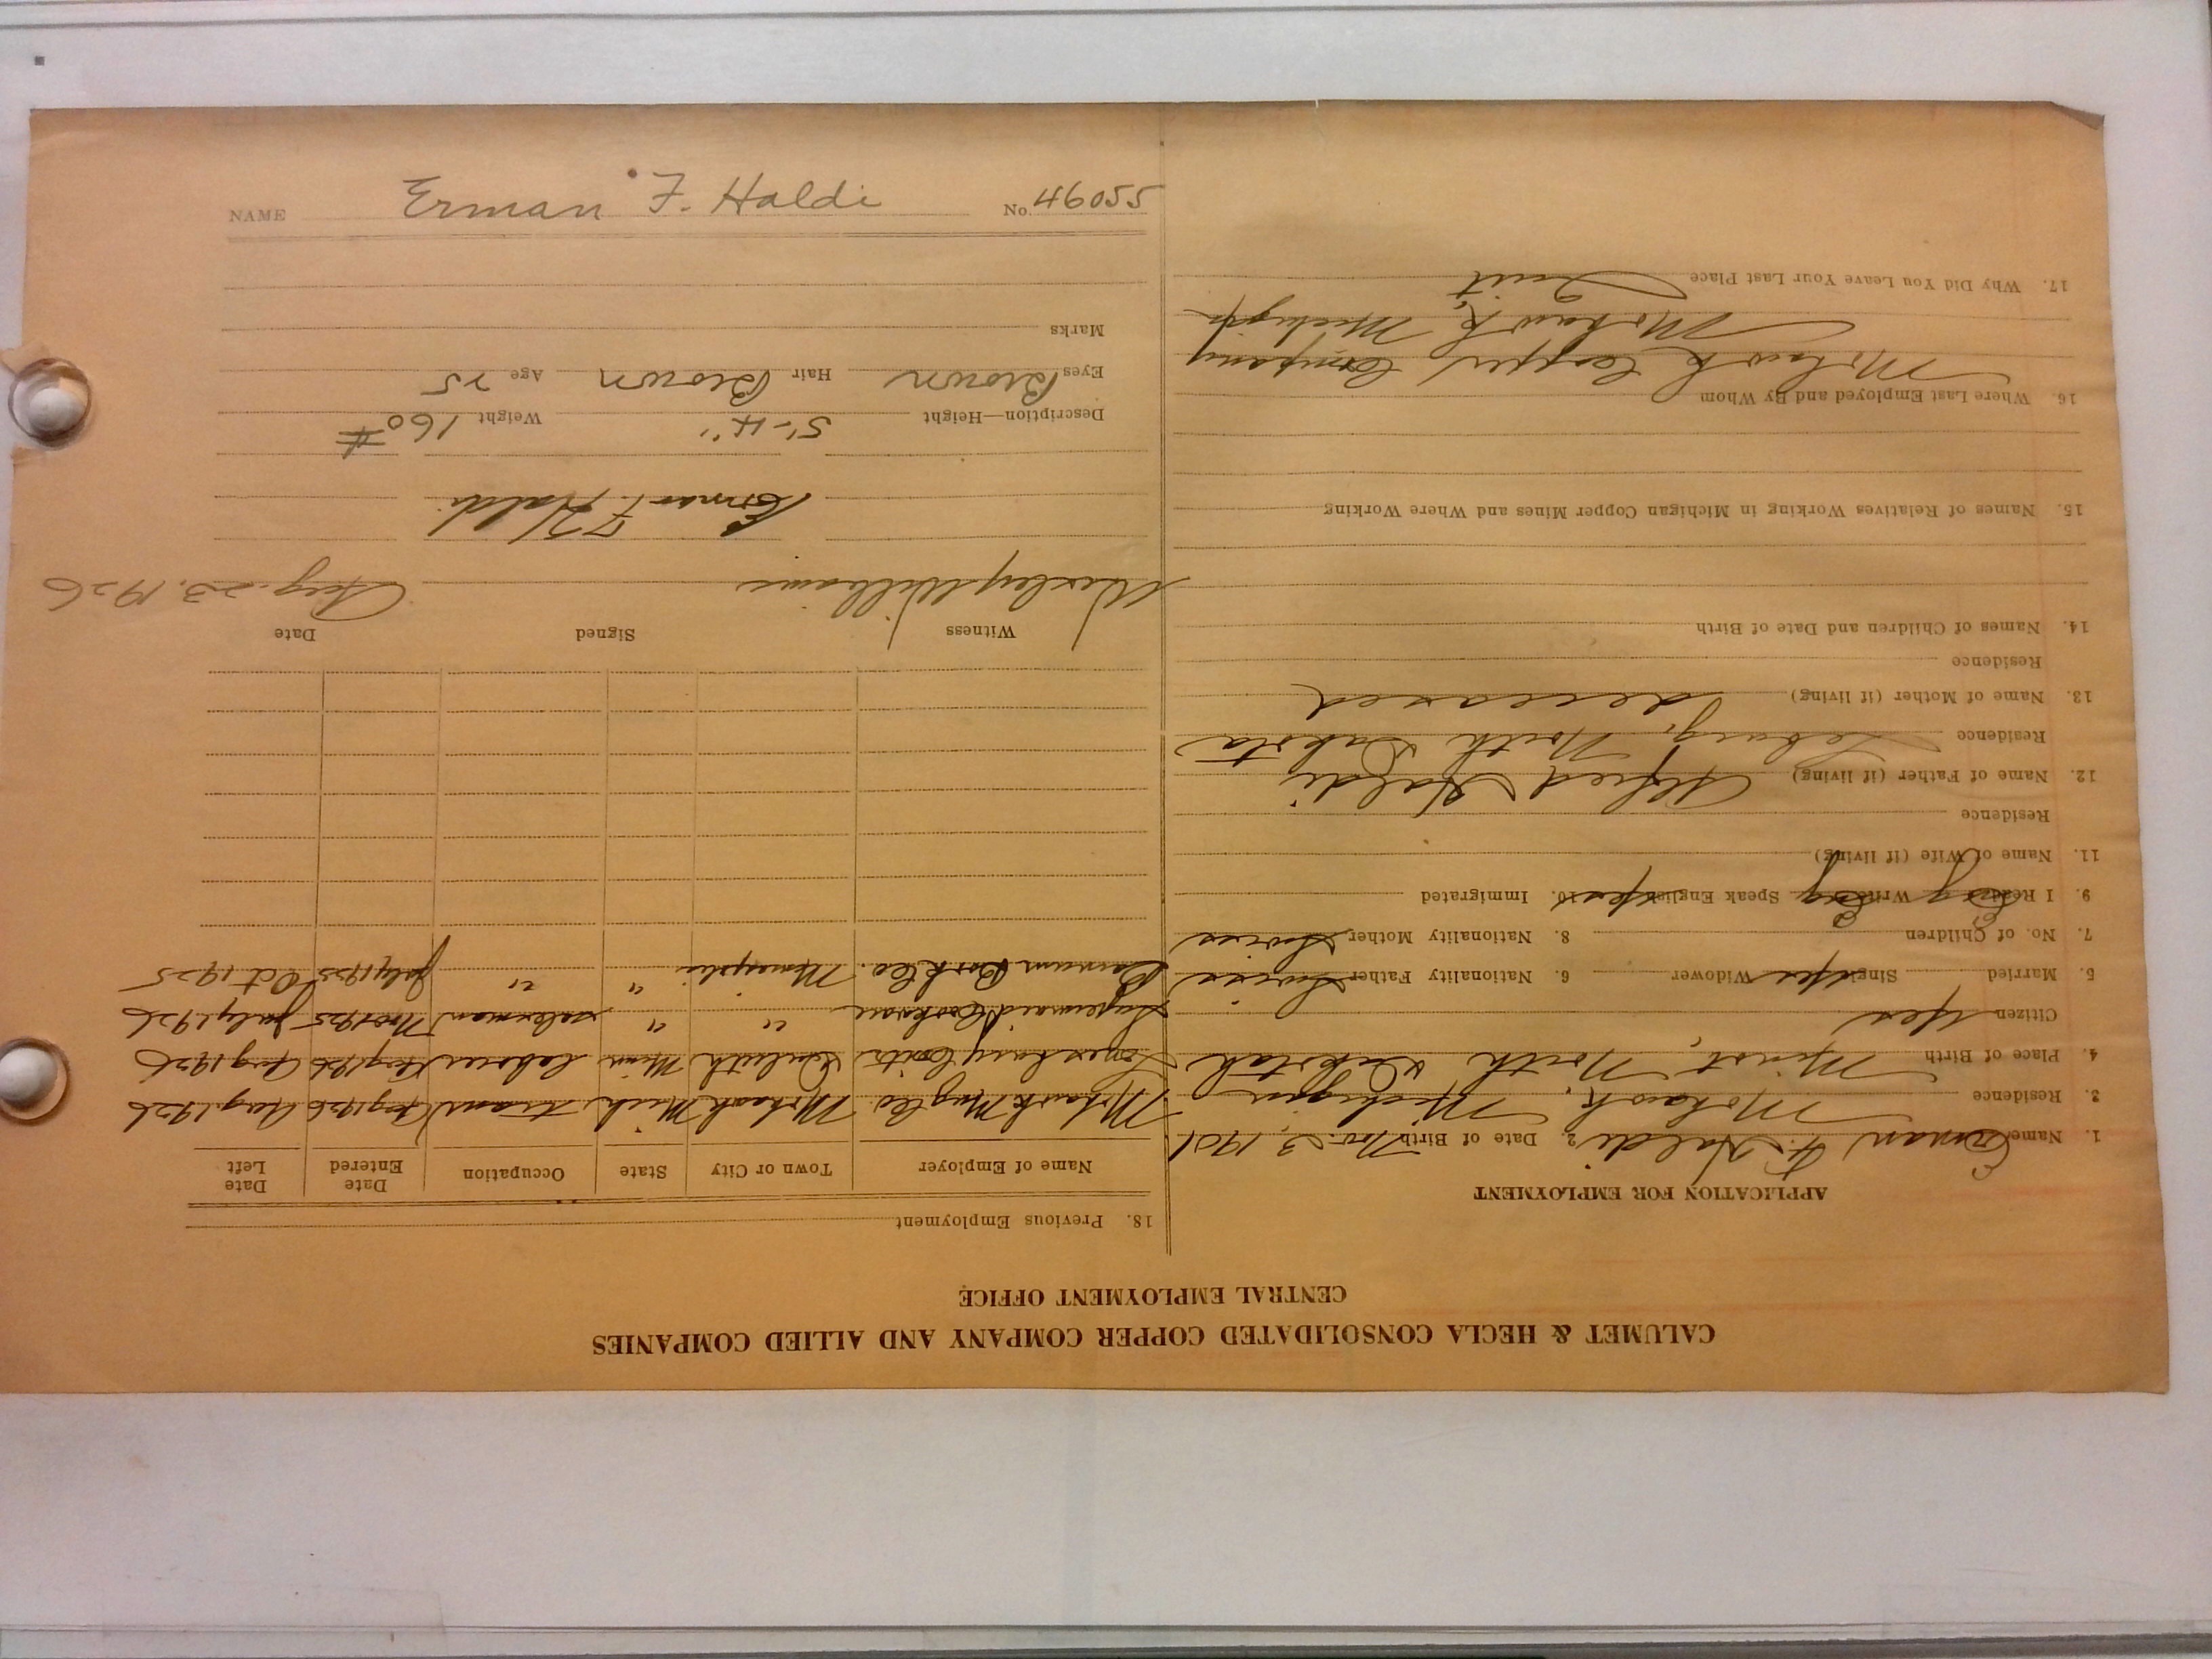 NAME Erman F. Haldi No. 46055
CALUMET & HECLA CONSOLIDATED COPPER COMPANY AND ALLIED COMPANIES
CENTRAL EMPLOYMENT OFFICE
APPLICATION FOR EMPLOYMENT
1. Name Erman F. Haldi 2. Date of Birth Nov. 23, 1901
3. Residence Mohawk, Michigan
4. Place of Birth Minot, North Dakotah
Citizen Yes
5. Married Single Yes Widower 6. Nationality Father Swiss
7. No. of Children 8. Nationality Mother Swiss
9. I Read Eng Write Eng Speak English Yes 10. Immigrated
11. Name of Wife (if living)
Residence
12. Name of Father (if living) Alfred Haldi
Residence North Dakota
13. Name of Mother (if living) deceased
Residence
14. Names of Children and Date of Birth
15. Names of Relatives Working in Michigan Copper Mines and Where Working
16. Where Last Employed and By Whom
Mohawk Copper Company
Mohawk, Michigan
17. Why Did You Leave Your Last Place Quit
18. Previous Employment
Name of Employer Town or City State Occupation Date Entered Date Left
Mohawk Mng Co. Mohawk Mich tram Aug 1926 Aug 1926
Duluth Minn laborer Aug 1926 Aug 1926
" " salesman Nov 1925 July 1926
Co. " " July 1925 Oct 1925
Witness Signed Date
Wesley Williams Aug. 23, 1926
Erman F. Haldi
Description—Height 5'-4" Weight 160#
Eyes Brown Hair Brown Age 25
Marks